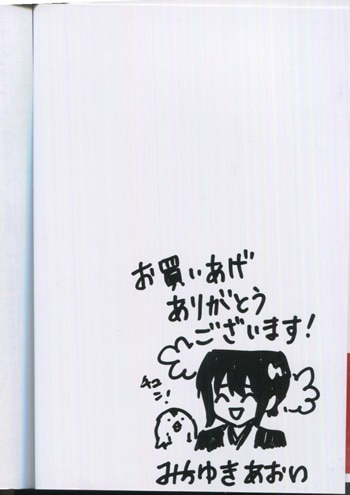 お買いあげ
ありがとう
ございます!
チュン!
みちゆきあおい